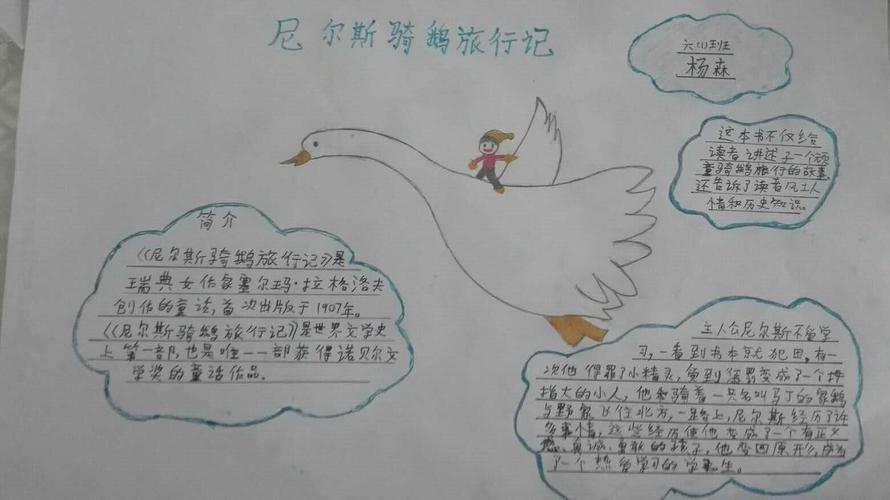 尼尔斯骑鹅旅行记
六(1)班
杨森
这本书不仅给
读者讲述了一个顽
童骑鹅旅行的故事,
还告诉了读者风土人
情和历史知识。
简介
《尼尔斯骑鹅旅行记》是
瑞典女作家塞尔玛·拉格洛夫
创作的童话,首次出版于1907年。
《尼尔斯骑鹅旅行记》是世界文学史
上第一部,也是唯一一部获得诺贝尔文
学奖的童话作品。
主人公尼尔斯不爱学
习,一看到书本就犯困。有一
次他得罪了小精灵,受到惩罚变成了一个拇
指大的小人,他和骑着一只名叫马丁的家鹅
与野鹅飞往北方,一路上,尼尔斯经历了许
多事情,这些经历使他变成了一个有正义
感、真诚、勇敢的孩子,他变回原形,成为
了一个热爱学习的学生。